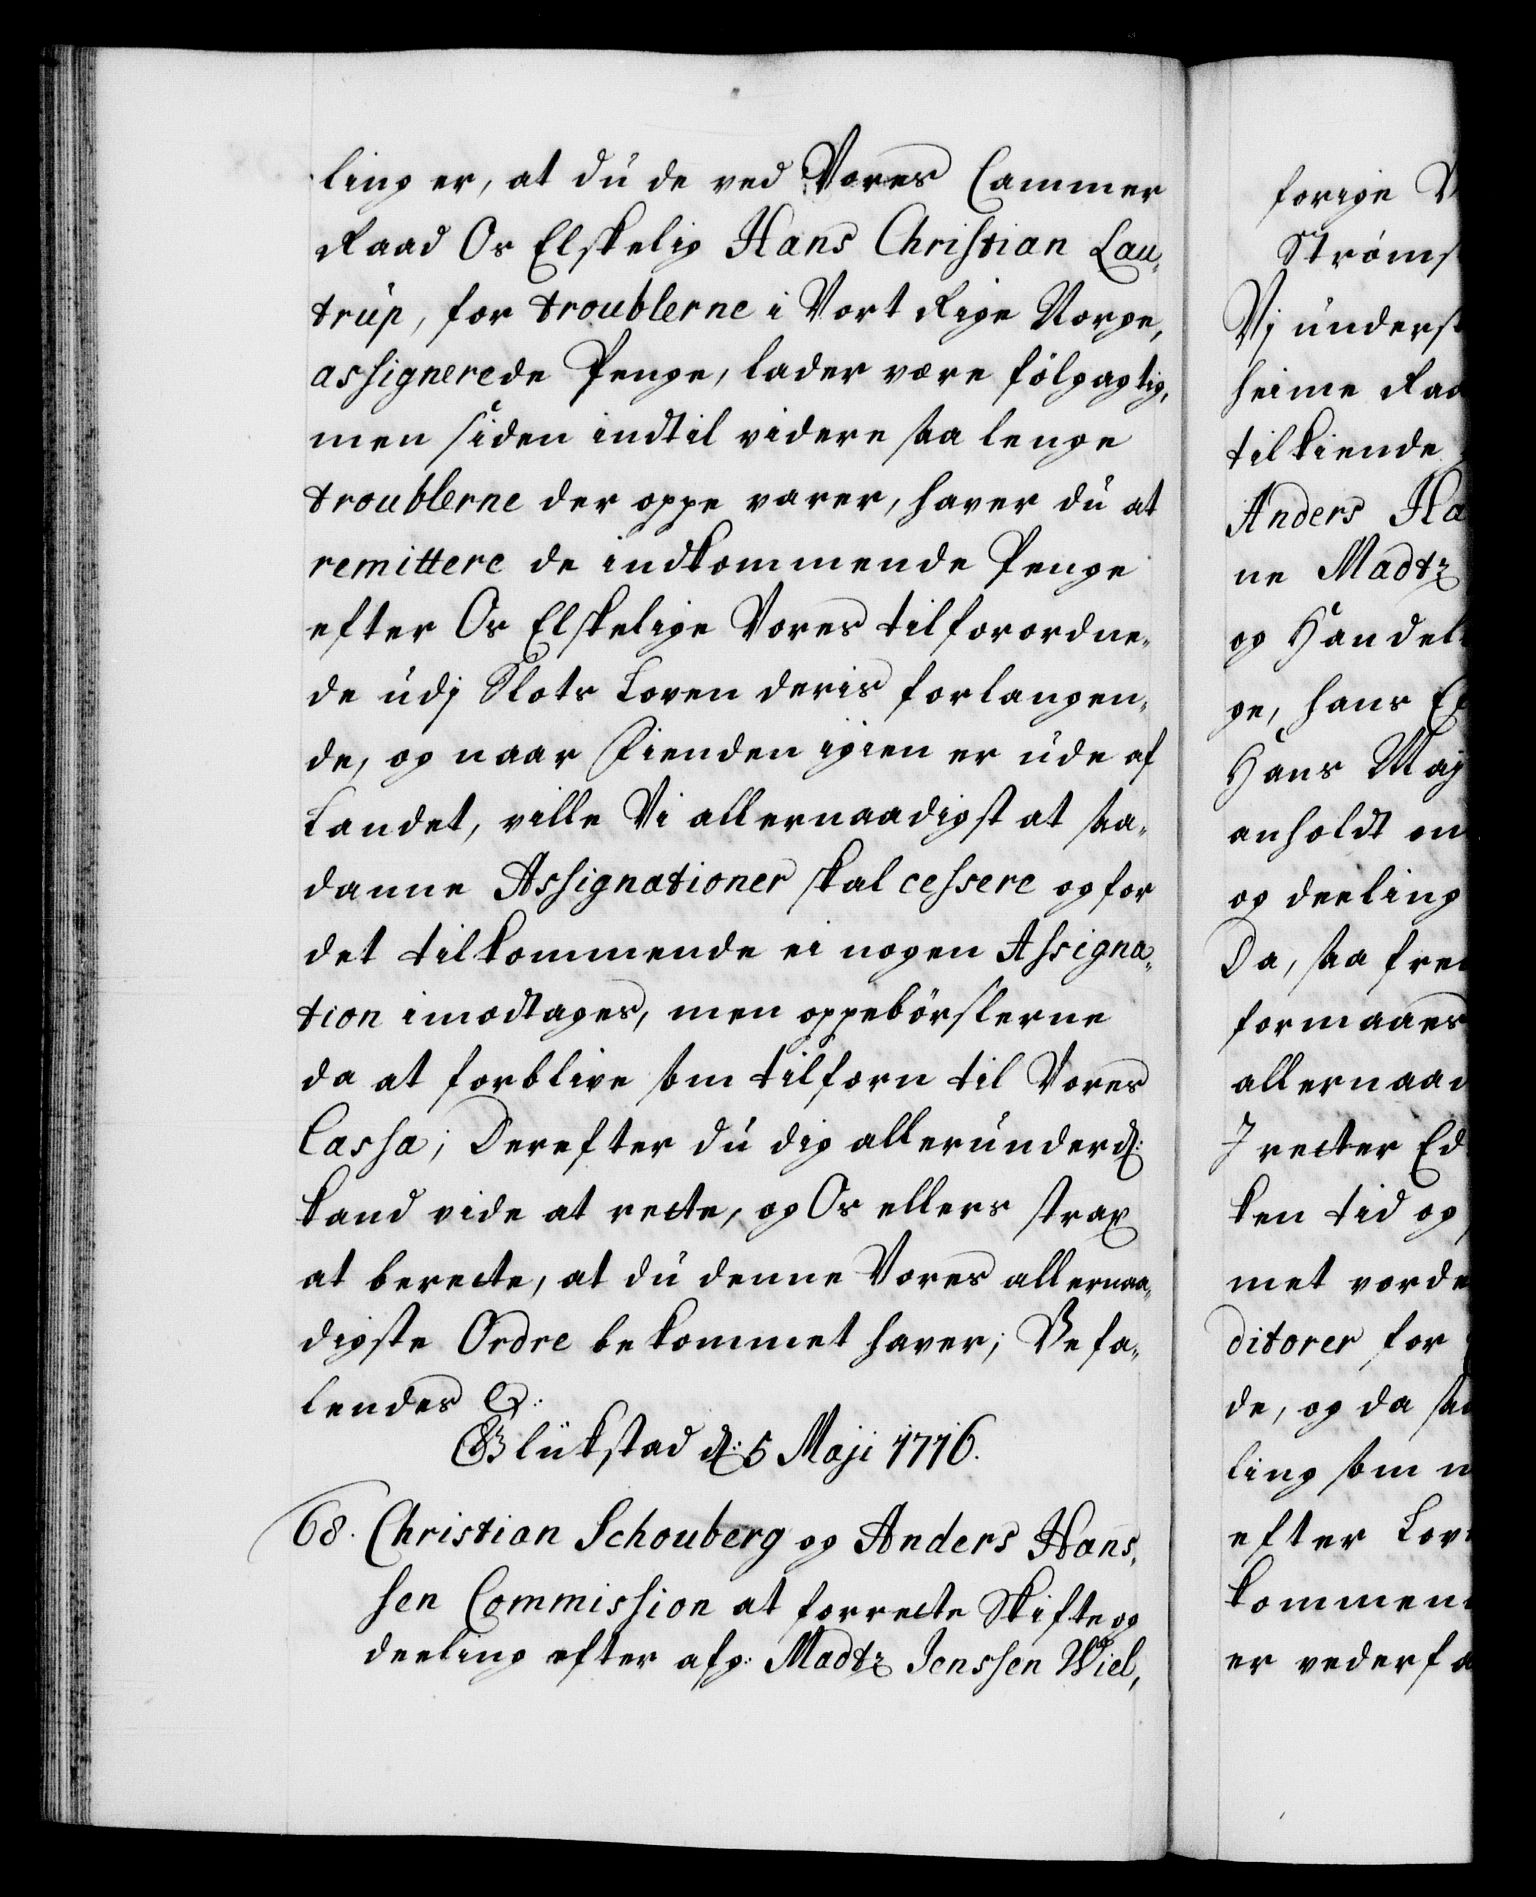 ling er, at du de ved Vores Cammer
Raad Os Elskelig Hans Christian Lau-
trup, for troublerne i Vort Rige Norge,
assignerede Penge, lader være følgagtig,
men siden indtil videre saa lenge
troublerne der oppe varer, haver du at
remittere de indkommende Penge
efter Os Elskelige Vores tilforordne-
de udj Slots Loven deris forlangen-
de, og naar Fienden igien er ude af
Landet, ville Vi allernaadigst at saa-
danne Assignationer skal cessere og for
det tilkommende ei nogen Assigna-
tion imodtages, men oppebørslerne
da at forblive som tilforn til Vores
Cassa; Derefter du dig allerunderd:
kand vide at rette, og Os ellers strax
at berette, at du denne Vores allernaa-
digste Ordre bekommet haver; Befa-
lendes &:
Glükstad d: 5 Maji 1716.
68. Christian Schouberg og Anders Hans-
sen Commission at forrette Skifte og
deeling efter afg: Madtz Jenssen Wiel,
forige
Strøms
Vj underst
heime Raa
tilkiende
Anders Ha
ne Madtz
og Handels
ge, hans
Hans Maj
anholdt om
og deeling
Da, saa fre
formaaes
allernaad
I retter Ed
ken tid og
met vorde
ditorer for
de, og da saa
ling som
efter Lov
kommen
er vederfa